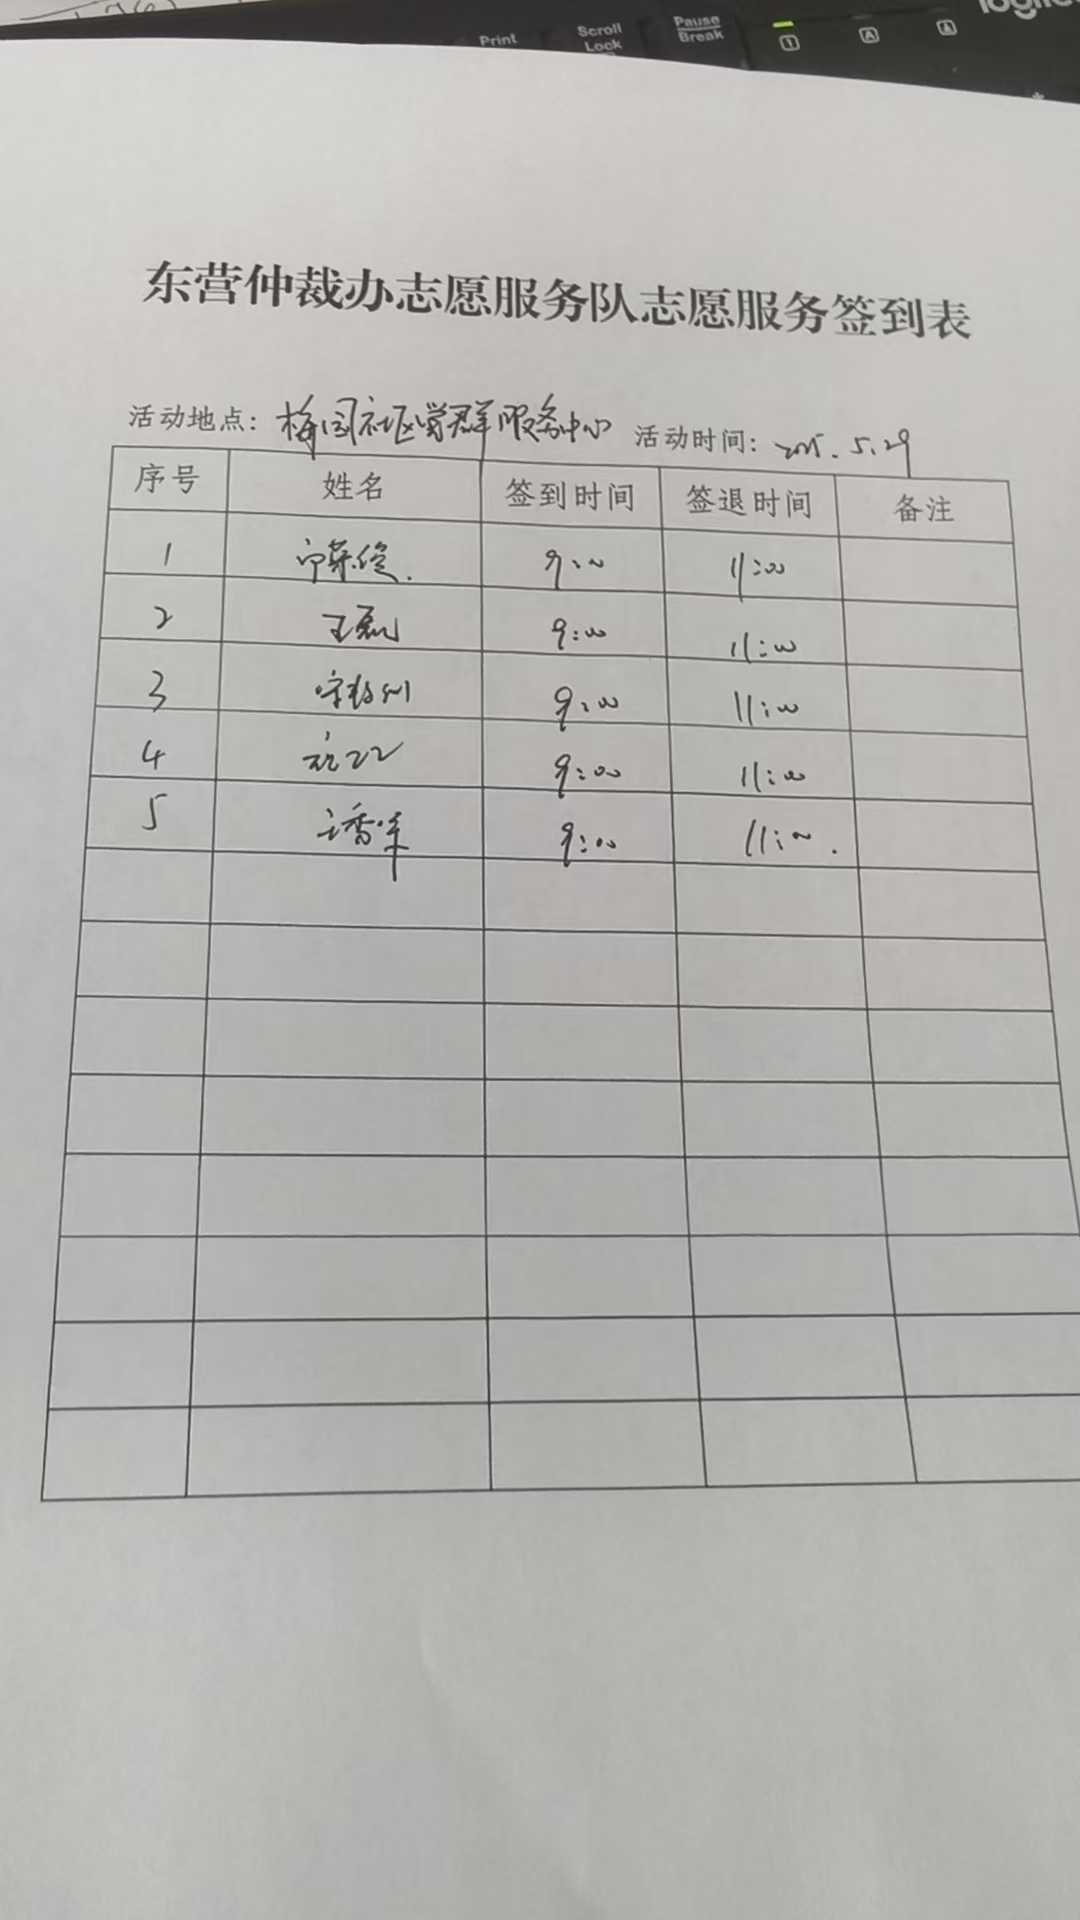 Print
Scroll Lock
Pause Break
1
A
东营仲裁办志愿服务队志愿服务签到表
活动地点：梅园社区党群服务中心 活动时间：2025.5.29
序号 姓名 签到时间 签退时间 备注
1 9:00 11:00
2 王磊 9:00 11:00
3 9:00 11:00
4 9:00 11:00
5 9:00 11:00